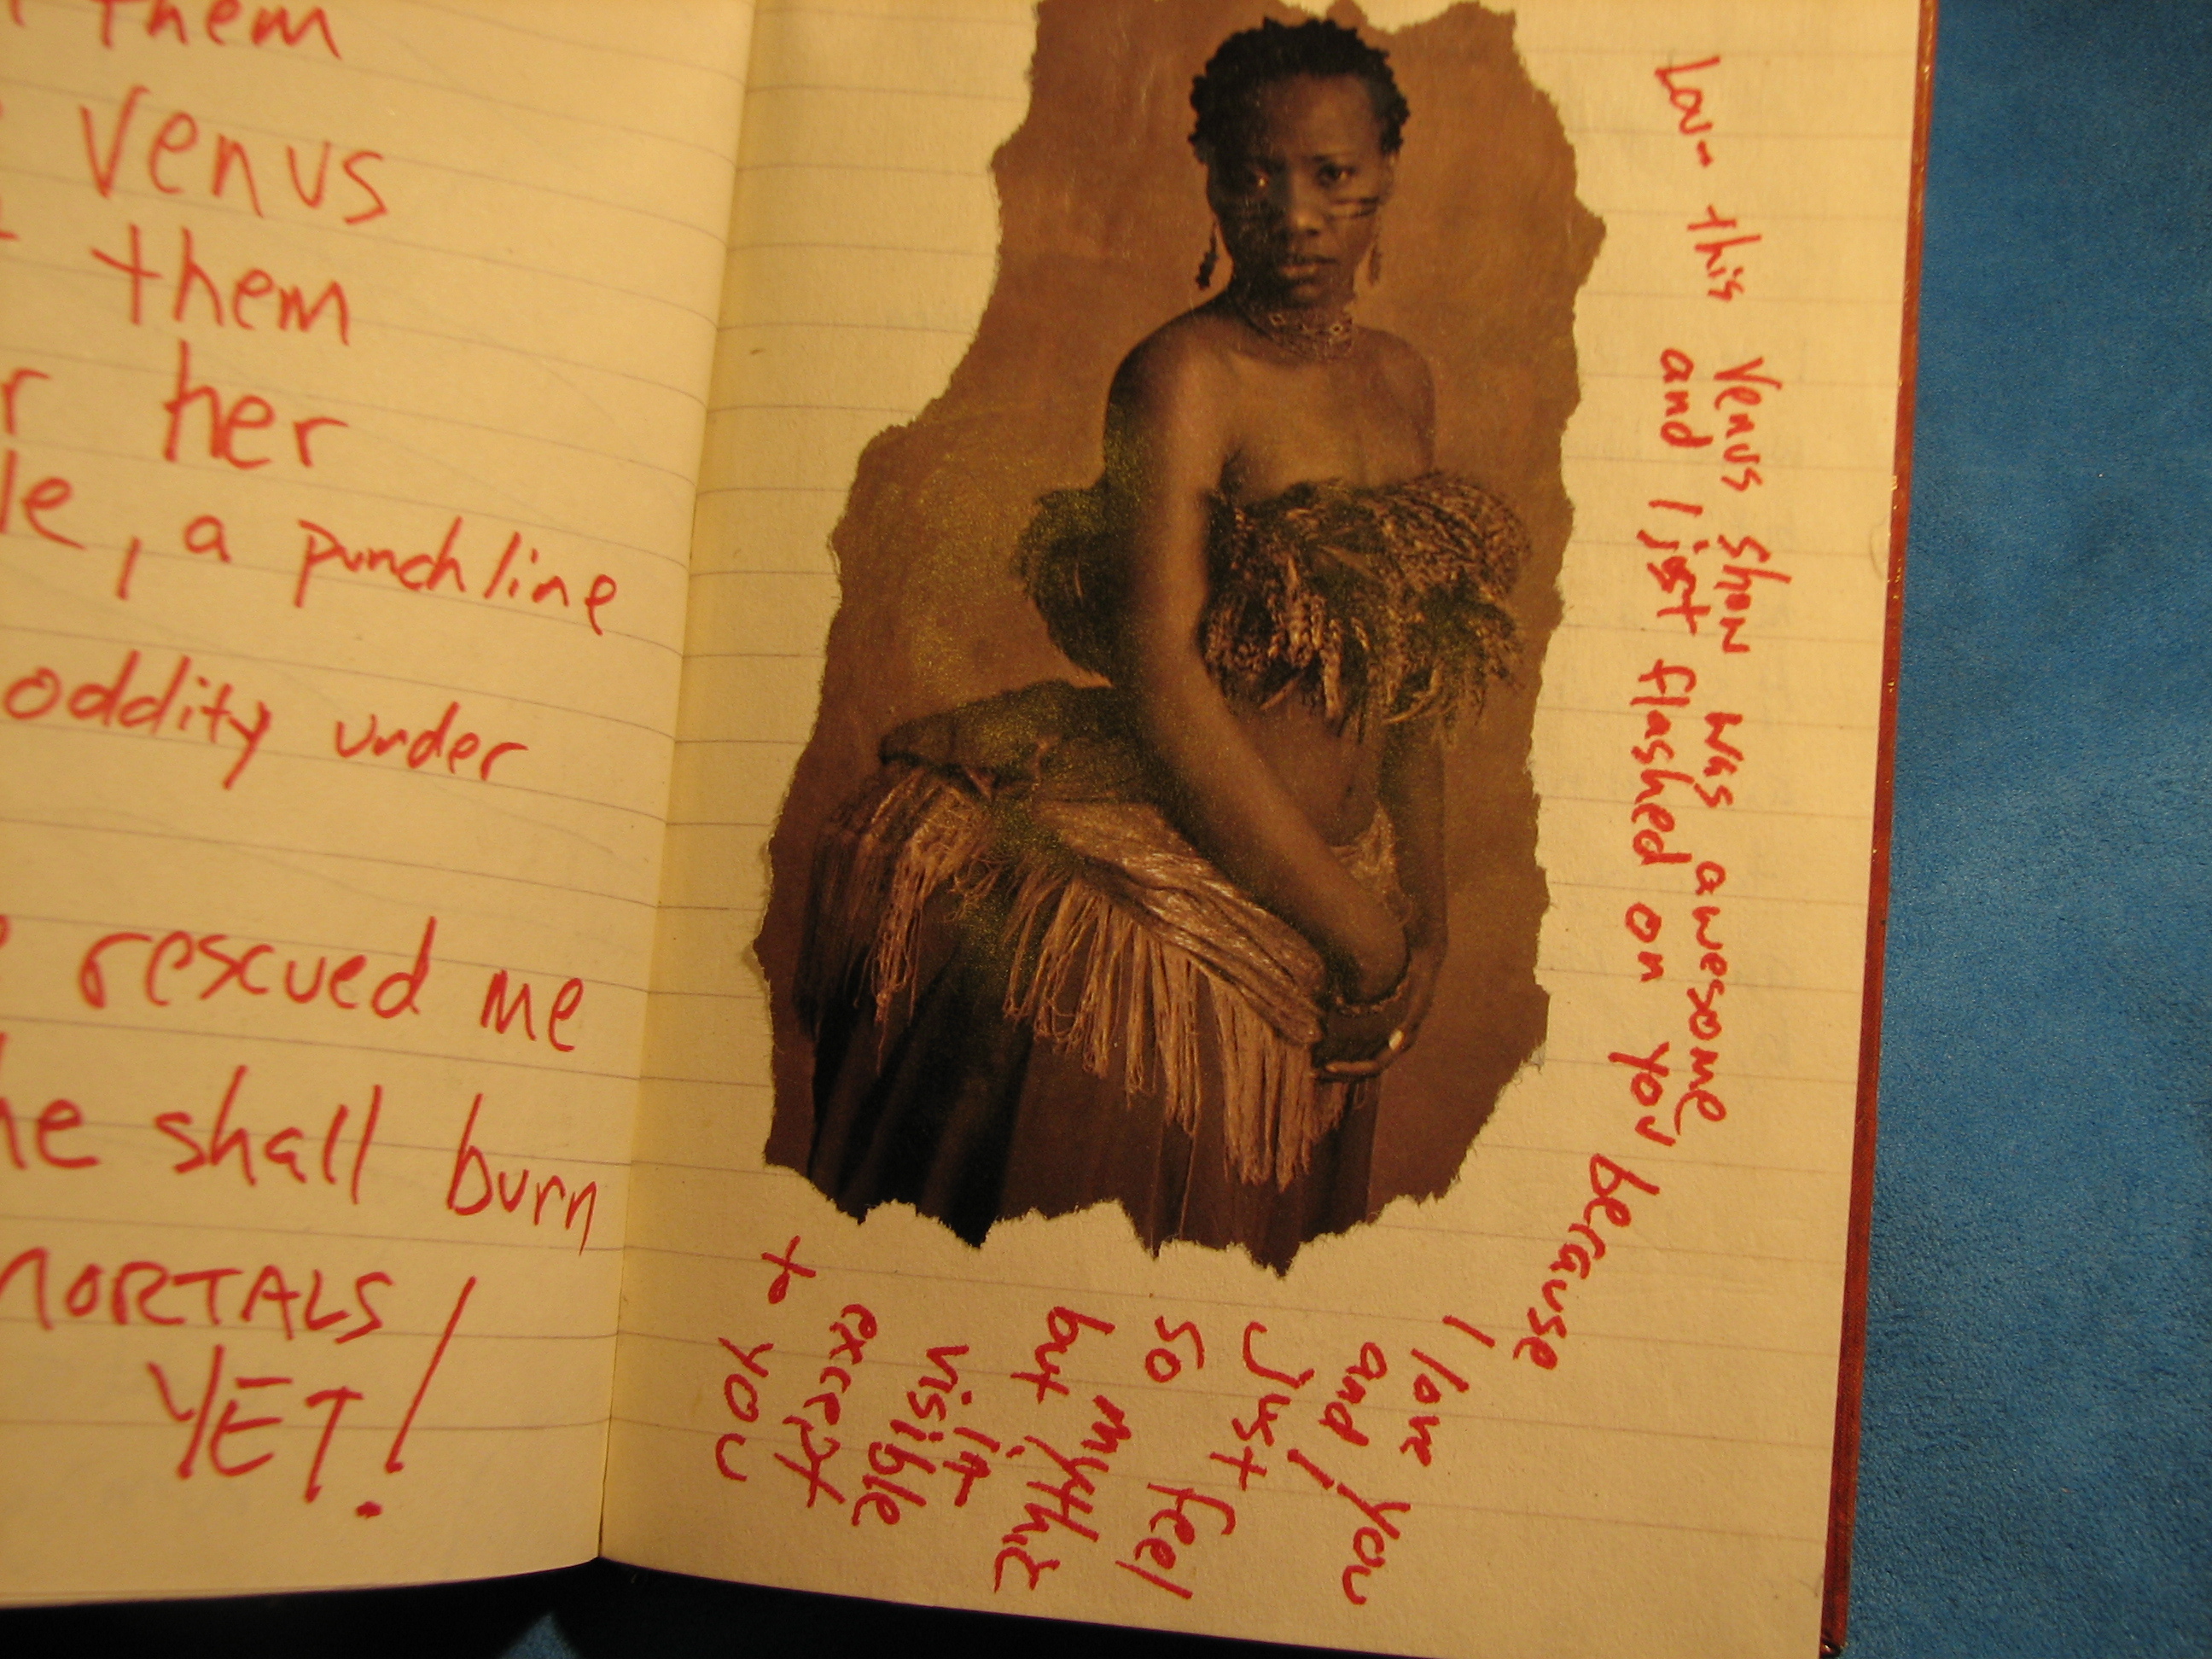 them
venus
them
her
, a punchline
oddity under
rescued me
he shall burn
MORTALS
YET!
this venus show was awesome
and I just flashed on you because
I love you
and I
just feel
so mythic
but
visible
except
to you